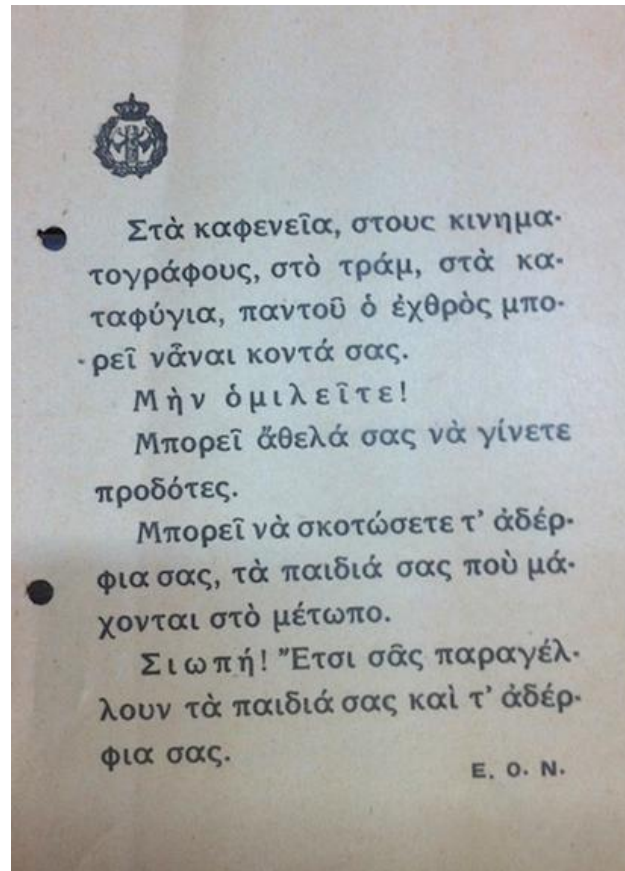 Στὰ καφενεῖα, στους κινημα-
τογράφους, στὸ τράμ, στὰ κα-
ταφύγια, παντοῦ ὁ ἐχθρὸς μπο-
ρεῖ νἆναι κοντά σας.
Μὴν ὁμιλεῖτε!
Μπορεῖ ἄθελά σας νὰ γίνετε
προδότες.
Μπορεῖ νὰ σκοτώσετε τ' ἀδέρ-
φια σας, τὰ παιδιά σας ποὺ μά-
χονται στὸ μέτωπο.
Σιωπή! Ἔτσι σᾶς παραγέλ-
λουν τὰ παιδιά σας καὶ τ' ἀδέρ-
φια σας.
Ε. Ο. Ν.